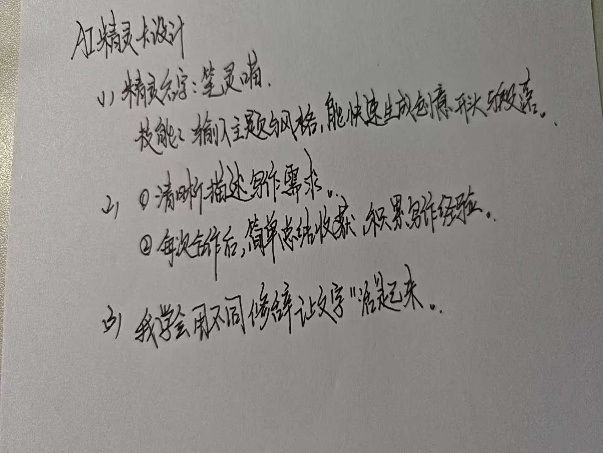 AI精灵卡设计
(1) 精灵名字:笔灵喵.
技能:输入主题与风格,能快速生成创意开头与段落。
(2) ①清晰描述写作需求。
②每次合作后,简单总结收获,积累写作经验。
(3) 我学会用不同修辞让文字"活"起来。